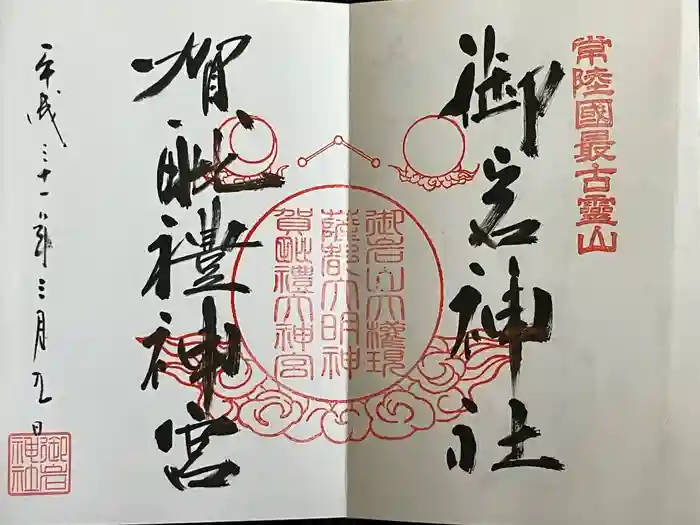 常陸國最古靈山
御岩神社
御岩山大權現
薩都大明神
賀毗禮大神宮
賀毗禮神宮
平成三十一年三月九日
御岩
神社